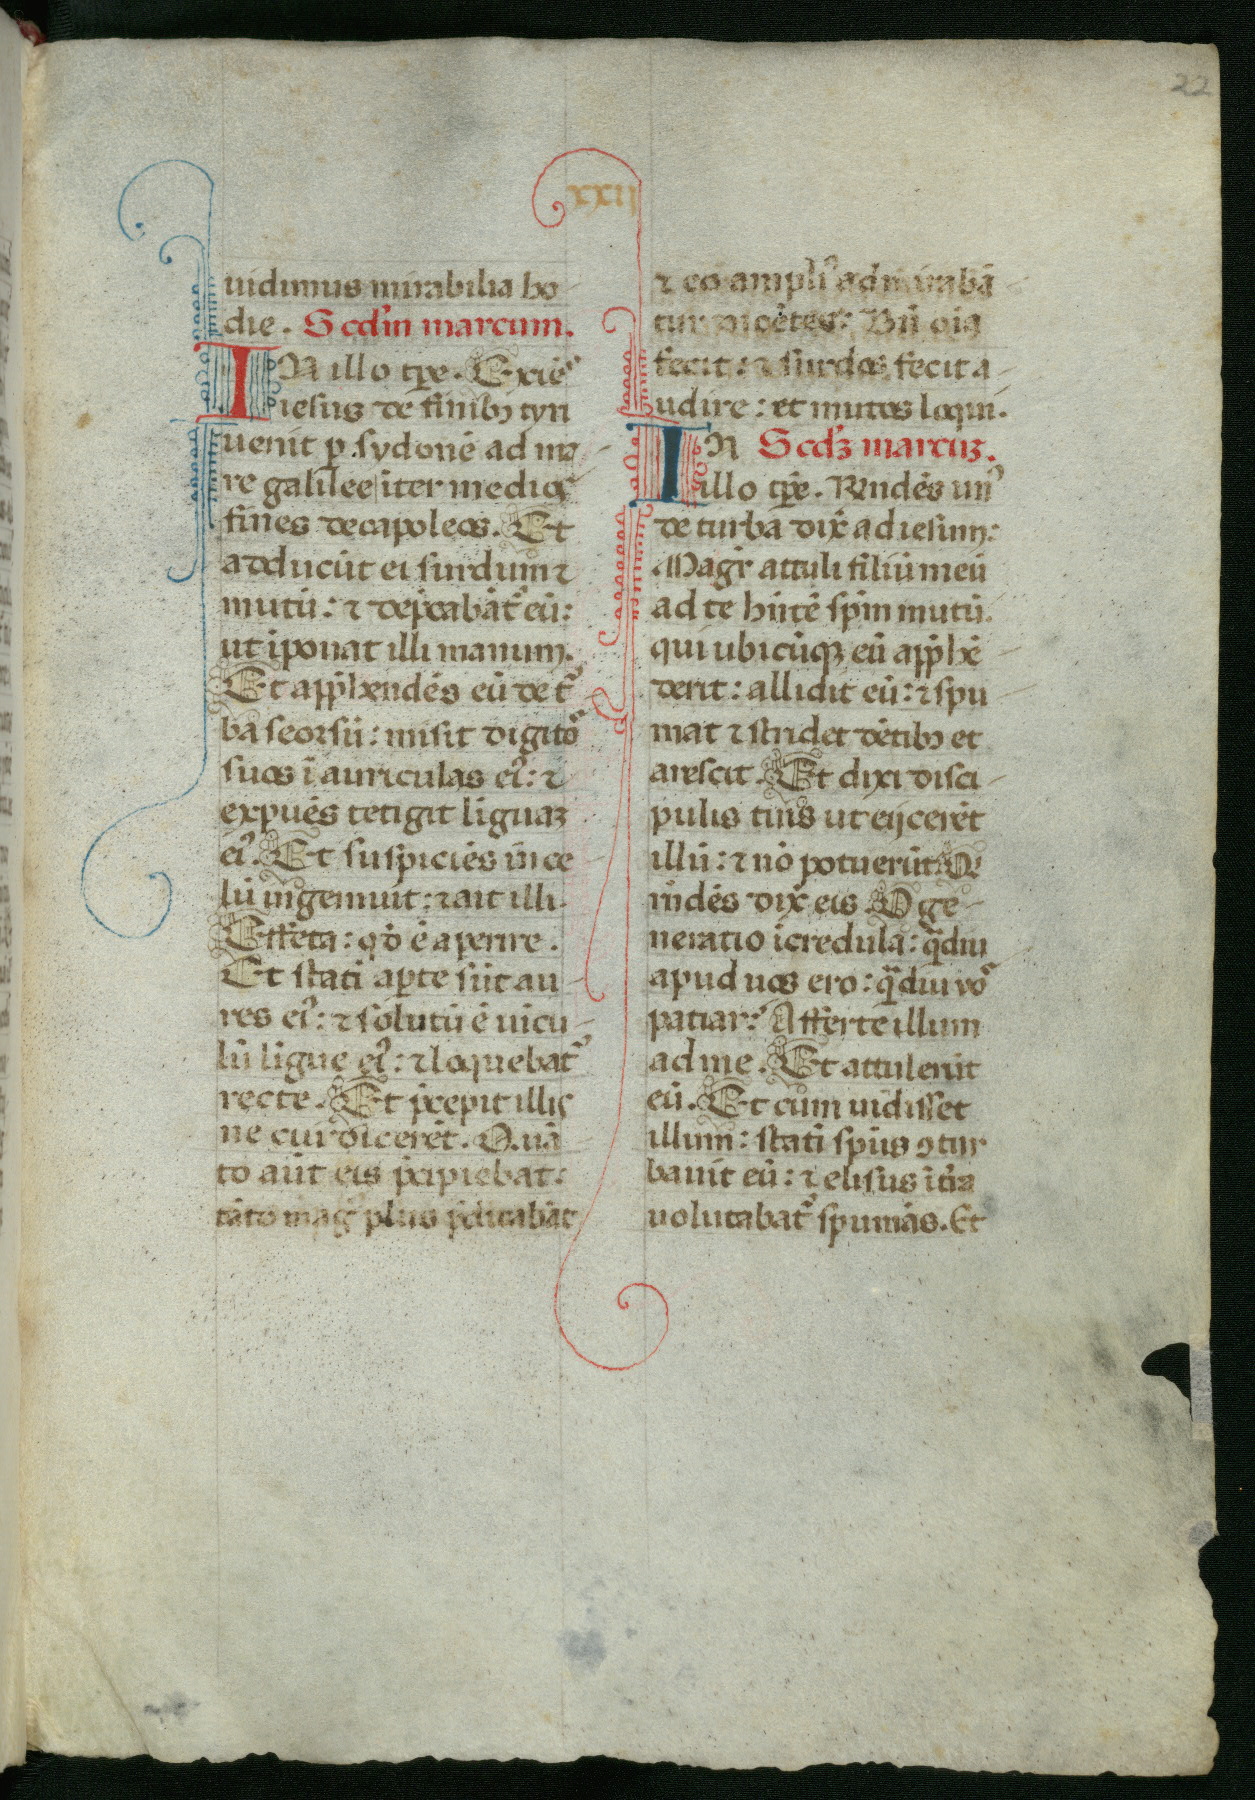 22
xxii
uidimus mirabilia ho
die. Scd'm marcum.
IN illo tp̄e. Exiēs
iesus de finibꝫ tyri
uenit p̱ sydonē ad ma
re galilee iter medios
fines decapoleos. Et
adducūt ei surdum ⁊
mutū: ⁊ dep̄cabāt᷑ eū:
ut īponat illi manum.
Et app̄hendēs eū de t᷑
ba seorsū: misit digito᷒
suos ī auriculas ei᷒: ⁊
expuēs tetigit liguaꝫ
ei᷒. Et suspiciēs in ce
lū ingemuit: ⁊ ait illi.
Effeta: qd̄ ē aperire.
Et stati ap̱te sūt au
res ei᷒: ⁊ solutū ē uicu
lū ligue ei᷒: ⁊ loquebat᷑
recte. Et p̄cepit illis
ne cui dicerēt. Quā
to aūt eis p̄cipiebat:
tāto mag᷒ plus p̄dicabāt
⁊ eo ampli᷒ admirabā
tur dicētes: Bn̄ oīa
fecit: ⁊ surdos fecit a
udire: et mutos loqui.
IN Scd'ꝫ marcuꝫ.
illo tp̄e. Rn̄dēs un᷒
de turba dix̄ ad iesum:
Magr̄ attuli filiū meū
ad te hn̄tē sp̄m mutū.
qui ubicūqꝫ eū app̄hē
derit: allidit eū: ⁊ spu
mat ⁊ stridet dētibꝫ et
arescit. Et dixi disci
pulis tuis ut eijcerēt
illū: ⁊ nō potuerūt. Q
rn̄dēs dix̄ eis. O ge
neratio īcredula: q̄diu
apud uos ero: q̄diu vo᷒
patiar? Afferte illum
ad me. Et attulerūt
eū. Et cum uidisset
illum: stati sp̄us ꝯtur
bauit eū: ⁊ elisus ī t̄ra
uolutabat᷑ spumās. Et